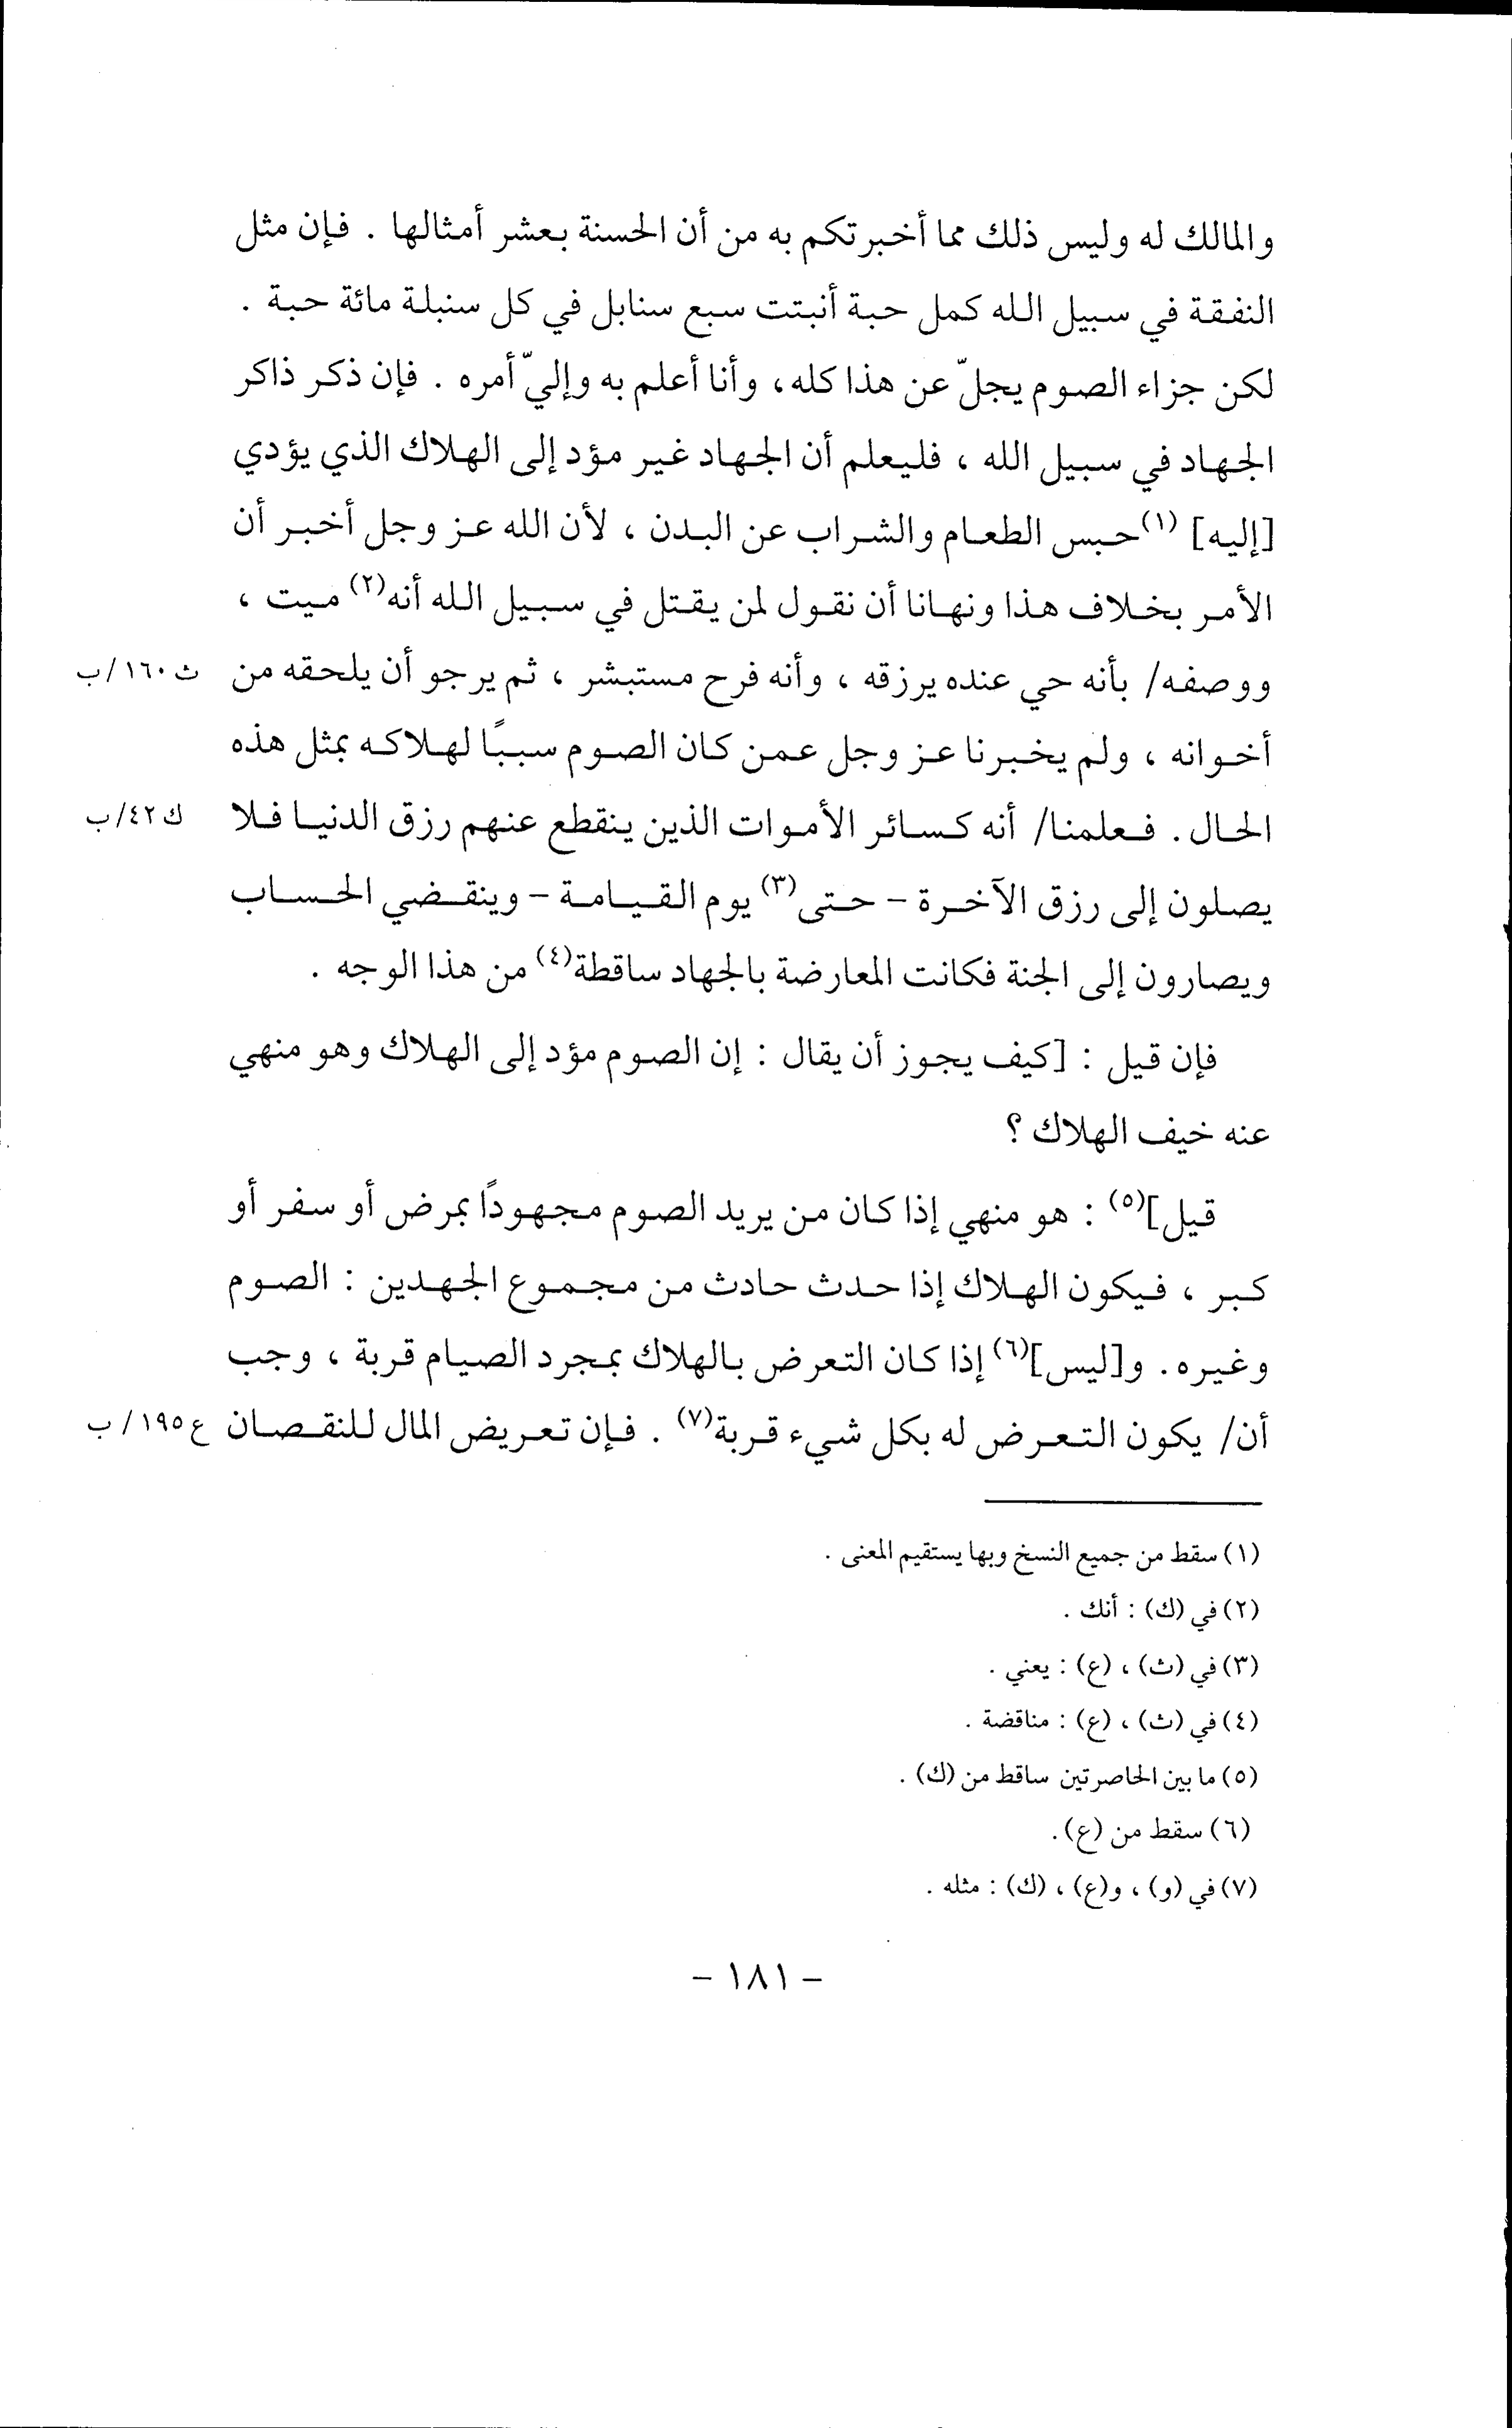 والمالك له وليس ذلك مما أخبرتكم به من أن الحسنة بعشر أمثالها . فإن مثل
النفقة في سبيل الله كمل حبة أنبتت سبع سنابل في كل سنبلة مائة حبة .
لكن جزاء الصوم يجلّ عن هذا كله ، وأنا أعلم به وإليّ أمره . فإن ذكر ذاكر
الجهاد في سبيل الله ، فليعلم أن الجهاد غير مؤد إلى الهلاك الذي يؤدي
[إليه] (١) حبس الطعام والشراب عن البدن ، لأن الله عز وجل أخبر أن
الأمر بخلاف هذا ونهانا أن نقول لمن يقتل في سبيل الله أنه(٢) ميت ،
ووصفه/ بأنه حي عنده يرزقه ، وأنه فرح مستبشر ، ثم يرجو أن يلحقه من ث ١٦٠/ب
أخوانه ، ولم يخبرنا عز وجل عمن كان الصوم سببًا لهلاكه بمثل هذه
الحال . فعلمنا/ أنه كسائر الأموات الذين ينقطع عنهم رزق الدنيا فلا ك ٤٢/ب
يصلون إلى رزق الآخرة - حتى(٣) يوم القيامة - وينقضي الحساب
ويصارون إلى الجنة فكانت المعارضة بالجهاد ساقطة(٤) من هذا الوجه .
فإن قيل : [كيف يجوز أن يقال : إن الصوم مؤد إلى الهلاك وهو منهي
عنه خيف الهلاك ؟
قيل](٥) : هو منهي إذا كان من يريد الصوم مجهودًا بمرض أو سفر أو
كبر ، فيكون الهلاك إذا حدث حادث من مجموع الجهدين : الصوم
وغيره . و[ليس](٦) إذا كان التعرض بالهلاك بمجرد الصيام قربة ، وجب
أن/ يكون التعرض له بكل شيء قربة(٧) . فإن تعريض المال للنقصان ع ١٩٥/ ب
(١) سقط من جميع النسخ وبها يستقيم المعنى .
(٢) في (ك) : أنك .
(٣) في (ث) ، (ع) : يعني .
(٤) في (ث) ، (ع) : مناقضة .
(٥) ما بين الحاصرتين ساقط من (ك) .
(٦) سقط من (ع) .
(٧) في (و) ، و(ع) ، (ك) : مثله .
- ١٨١ -